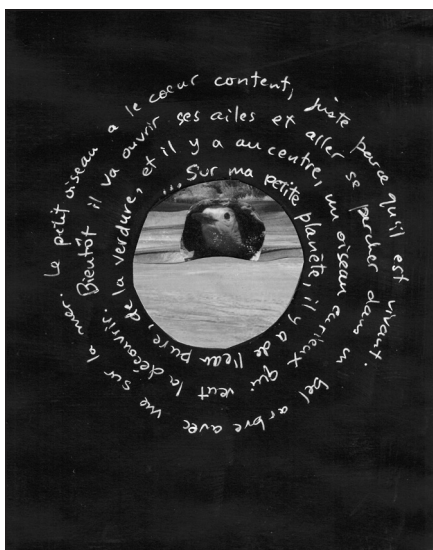 ... Sur ma petite planète, il y a de l'eau pure, de la verdure, et il y a au centre, un oiseau curieux qui veut la découvrir. Bientôt il va ouvrir ses ailes et aller se percher dans un bel arbre avec vue sur la mer. Le petit oiseau a le coeur content, juste parce qu'il est vivant.